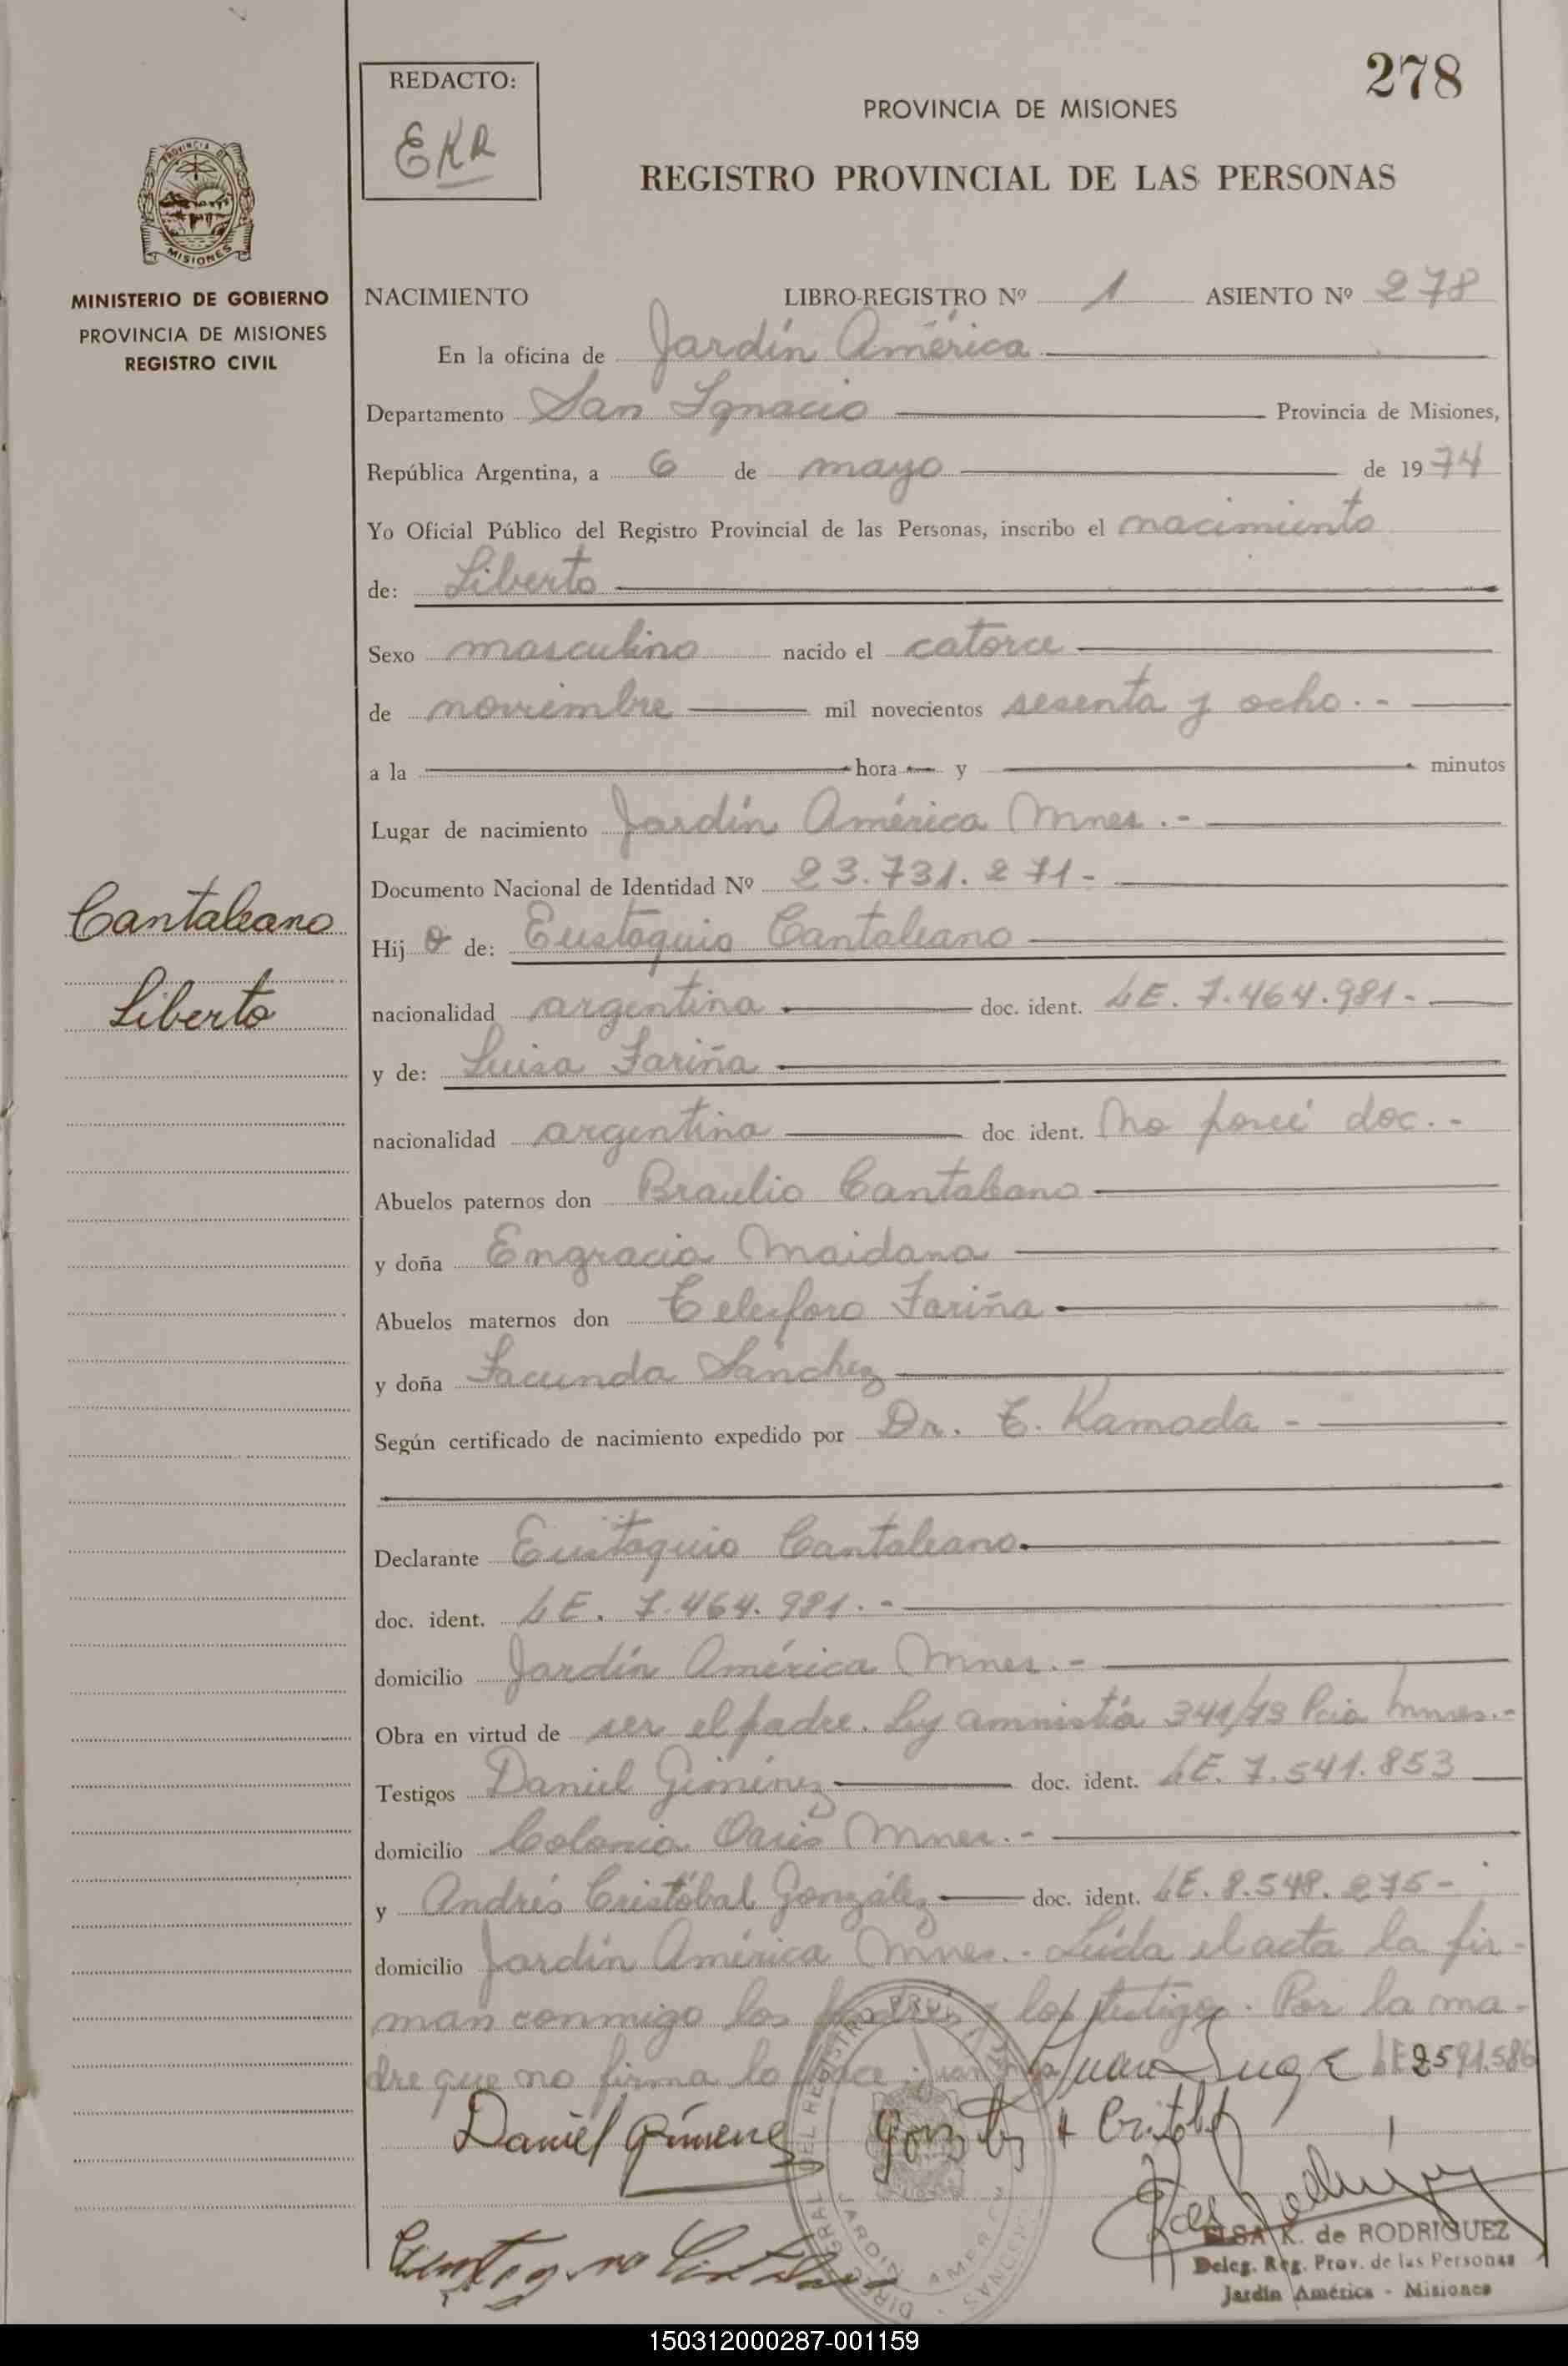 278
REDACTO:
EKR
PROVINCIA DE MISIONES
REGISTRO PROVINCIAL DE LAS PERSONAS
PROVINCIA DE
MISIONES
MINISTERIO DE GOBIERNO
PROVINCIA DE MISIONES
REGISTRO CIVIL
NACIMIENTO LIBRO-REGISTRO Nº 1 ASIENTO Nº 278
En la oficina de Jardín América
Departamento San Ignacio Provincia de Misiones,
República Argentina, a 6 de mayo de 1974
Yo Oficial Público del Registro Provincial de las Personas, inscribo el nacimiento
de: Liberto
Sexo masculino nacido el catorce
de noviembre mil novecientos sesenta y ocho.-
a la hora y minutos
Lugar de nacimiento Jardín América Mnes.-
Documento Nacional de Identidad Nº 23.731.271-
Cantaleano
Liberto
Hijo de: Eustaquio Cantaleano
nacionalidad argentina doc. ident. LE. 7.464.981-
y de: Luisa Fariña
nacionalidad argentina doc. ident. No poseé doc.-
Abuelos paternos don Braulio Cantaleano
y doña Engracia Maidana
Abuelos maternos don Telesforo Fariña
y doña Facunda Sánchez
Según certificado de nacimiento expedido por Dr. T. Kamada -
Declarante Eustaquio Cantaleano
doc. ident. LE. 7.464.981.-
domicilio Jardín América Mnes.-
Obra en virtud de ser el padre. Ley amnistía 341/73 Pcia Mnes.-
Testigos Daniel Giménez doc. ident. LE. 7.541.853
domicilio Colonia Oasis Mnes.-
y Andrés Cristóbal González doc. ident. LE. 8.548.275-
domicilio Jardín América Mnes.- Leída el acta la fir-
man conmigo los y los testigos. Por la ma-
dre que no firma lo hace Juan LE 2591.586
Daniel Gimenez Cristobal
ELSA K. de RODRIGUEZ
Deleg. Reg. Prov. de las Personas
Jardín América - Misiones
150312000287-001159